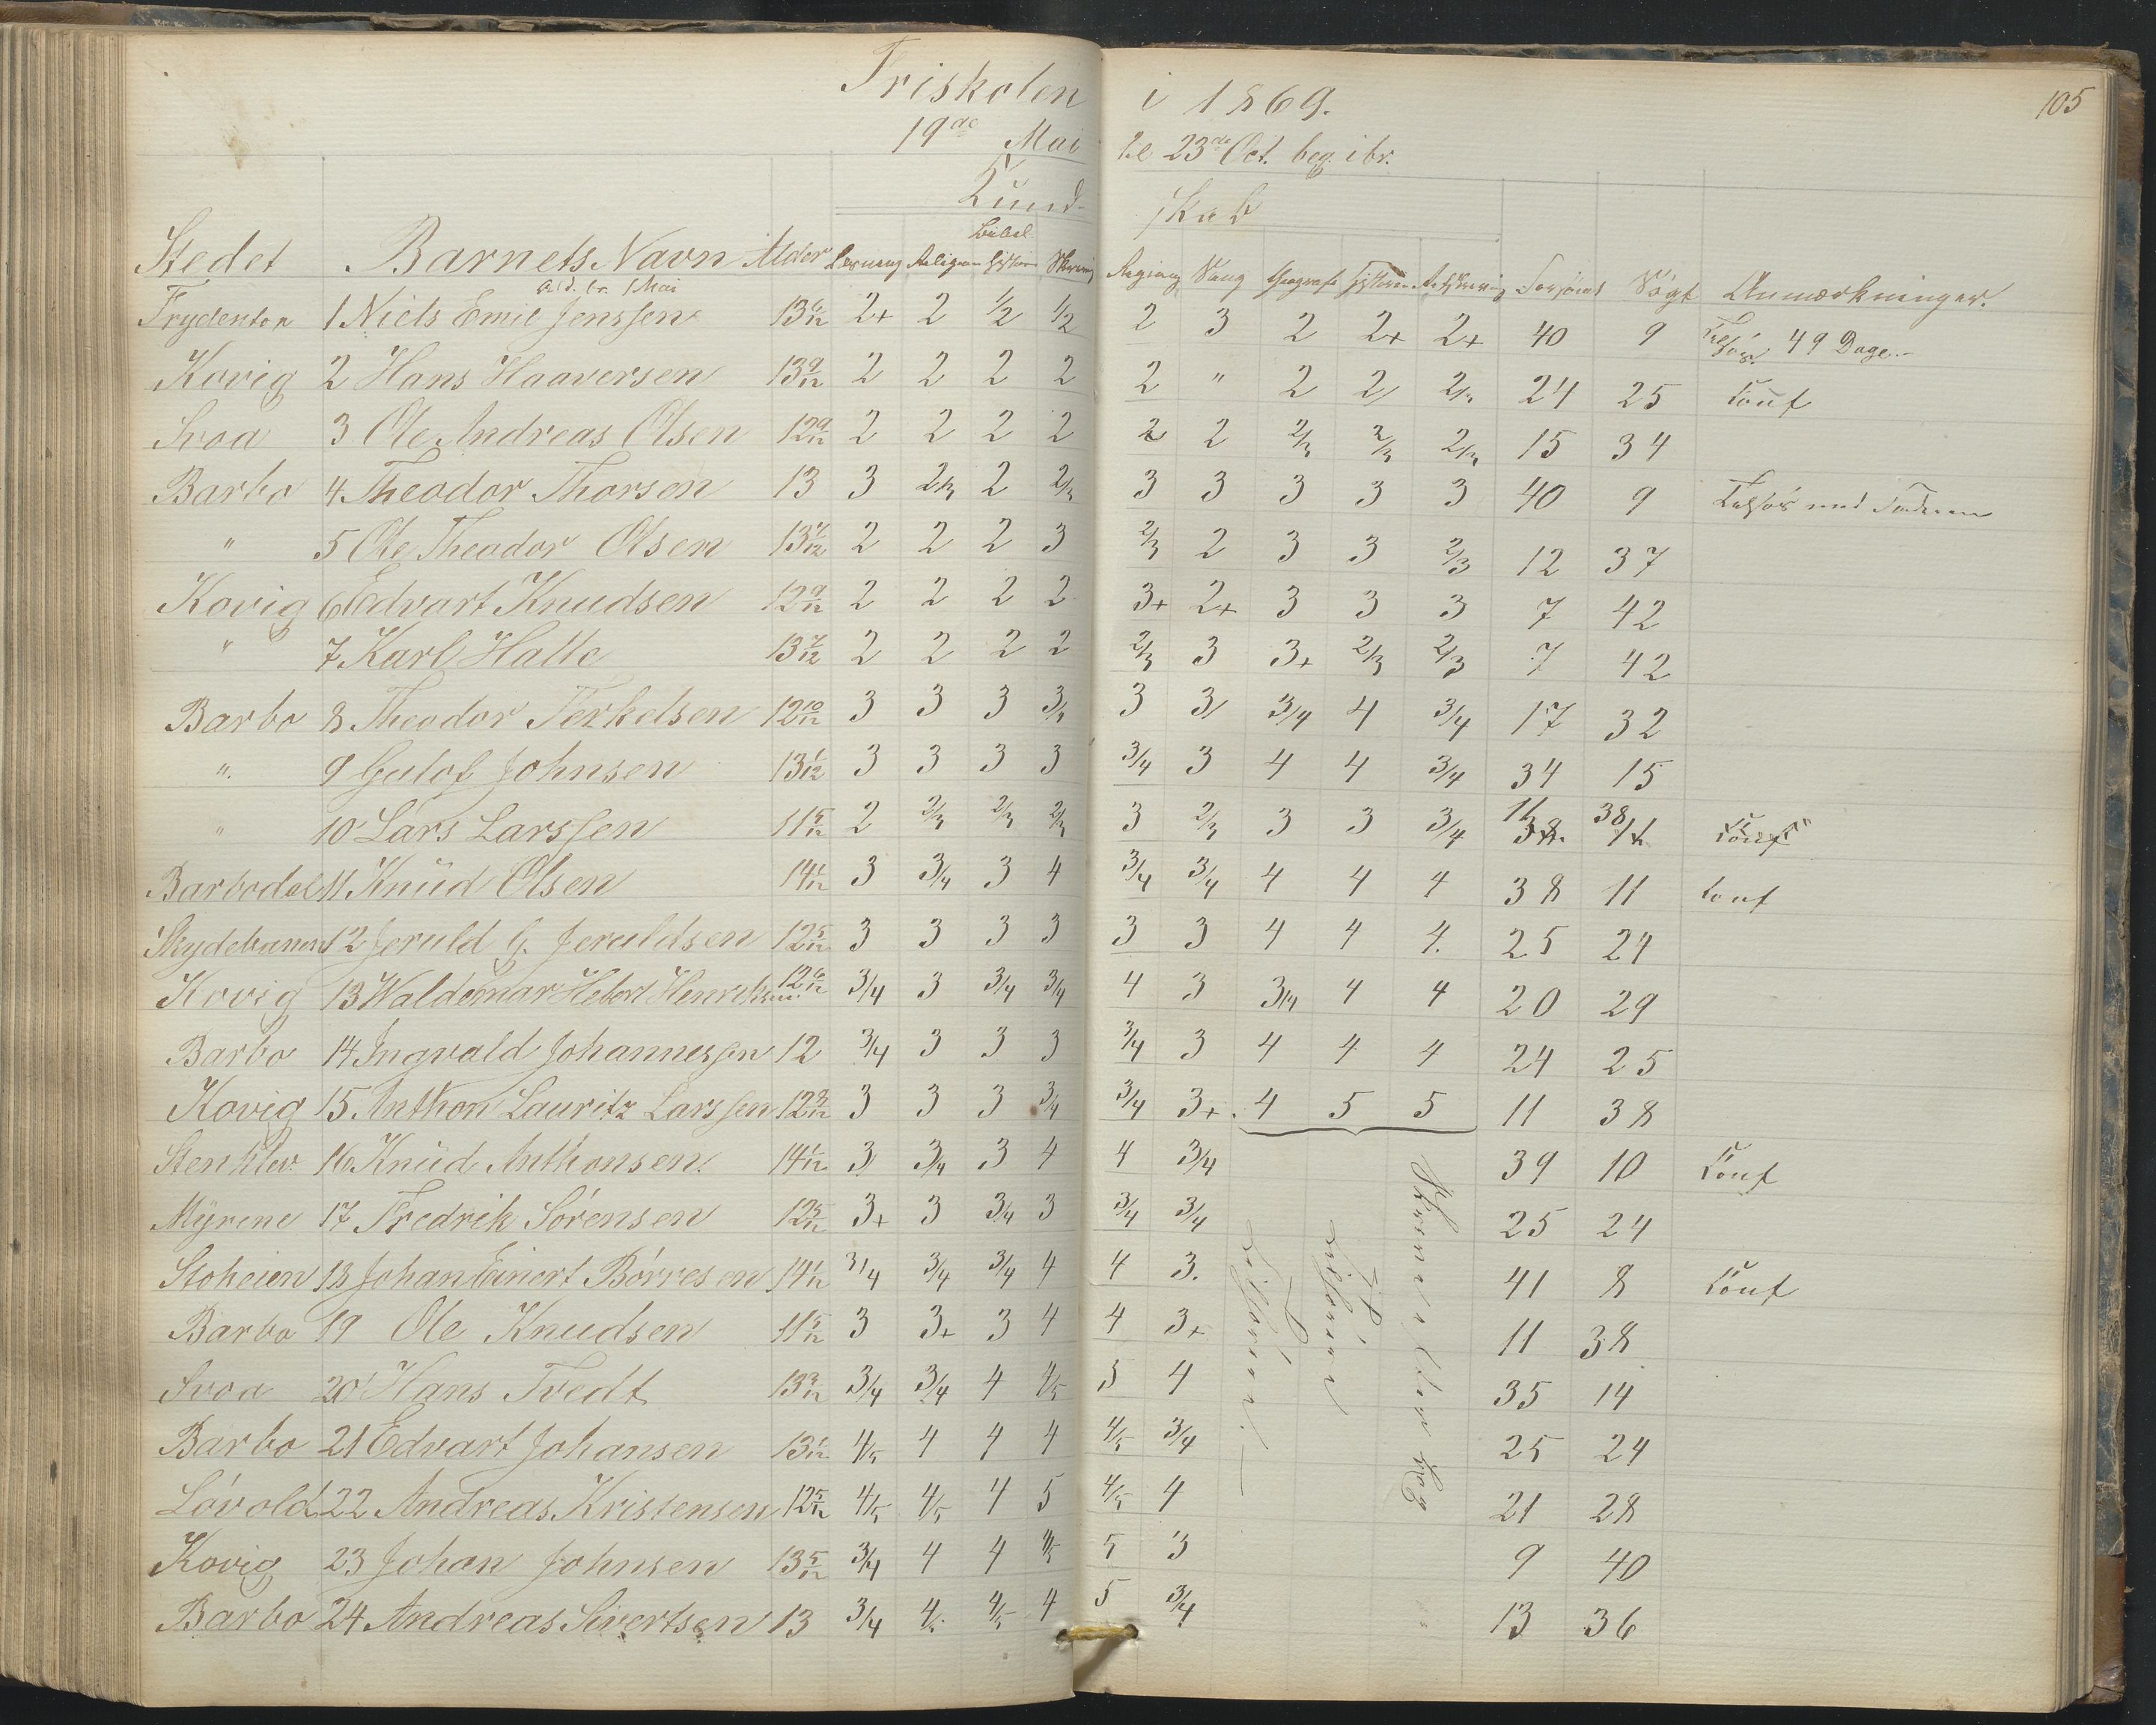 Friskolen i 1869.
105
19de Mai til 23de Oct. beg. ibr.
Kund- skab
Stedet Barnets Navn Alder Læsning Religion Bibel Historie Skrivning Regning Sang Geografi Historie Retskrivning Forsömt Sögt Anmærkninger.
Ald. br. 1 Mai
Frydenton 1 Niels Emil Jenssen 13 6/12 2+ 2 1/2 1/2 2 3 2 2+ 2+ 40 9 49 Dage.
Kovig 2 Hans Haaversen 13 9/12 2 2 2 2 2 " 2 2 2/3 24 25 Conf
Svoa 3 Ole Andreas Olsen 12 9/12 2 2 2 2 2 2 2/3 2/3 2/3 15 34
Barbo 4 Theodor Thorsen 13 3 2/3 2 2/3 3 3 3 3 3 40 9 Tilsös med Faderen
" 5 Ole Theodor Olsen 13 1/12 2 2 2 3 2/3 2 3 3 2/3 12 37
Kovig 6 Edvart Knudsen 12 9/12 2 2 2 2 3+ 2+ 3 3 3 7 42
" 7 Karl Halle 13 7/12 2 2 2 2 2/3 3 3+ 2/3 2/3 7 42
Barbo 8 Theodor Terkelsen 12 10/12 3 3 3 3/4 3 3 3/4 4 3/4 17 32
" 9 Gulof Johnsen 13 1/12 3 3 3 3 3/4 3 4 4 3/4 34 15
" 10 Lars Larssen 11 5/12 2 2/3 2/3 2/3 3 2/3 3 3 3/4 11 38 Conf
Barbodal 11 Knud Olsen 14 1/12 3 3/4 3 4 3/4 3/4 4 4 4 38 11 Conf
Skydebanen 12 Jeruld G. Jeruldsen 12 5/12 3 3 3 3 3 3 4 4 4. 25 24
Kovig 13 Waldemar Hebert Henriksen 12 6/12 3/4 3 3/4 3/4 4 3 3/4 4 4 20 29
Barbo 14 Ingvald Johannessen 12 3/4 3 3 3 3/4 3 4 4 4 24 25
Kovig 15 Anthon Lauritz Larssen 12 3/12 3 3 3 3/4 3/4 3+ 4 5 5 11 38
Stenklev 16 Knud Anthonsen 14 1/12 3 3/4 3 4 4 3/4 39 10 Conf
Myrene 17 Fredrik Sörensen 12 5/12 3+ 3 3/4 3 3/4 3/4 25 24
Stoheien 18 Johan Einert Börresen 14 1/12 3/4 3/4 3/4 4 4 3. 41 8 Conf
Barbo 19 Ole Knudsen 11 5/12 3 3+ 3 4 4 3+ 11 38
Svoa 20 Hans Tvedt 13 3/12 3/4 3/4 4 4/5 5 4 35 14
Barbo 21 Edvart Johansen 13 1/12 4/5 4 4 4 4/5 3/4 25 24
Lövold 22 Andreas Kristensen 12 5/12 4/5 4/5 4 5 4/5 4 21 28
Kovig 23 Johan Johnsen 13 5/12 3/4 4 4 4/5 5 3 9 40
Barbo 24 Andreas Sivertsen 13 3/4 4/5 4/5 4 5 3/4 13 36